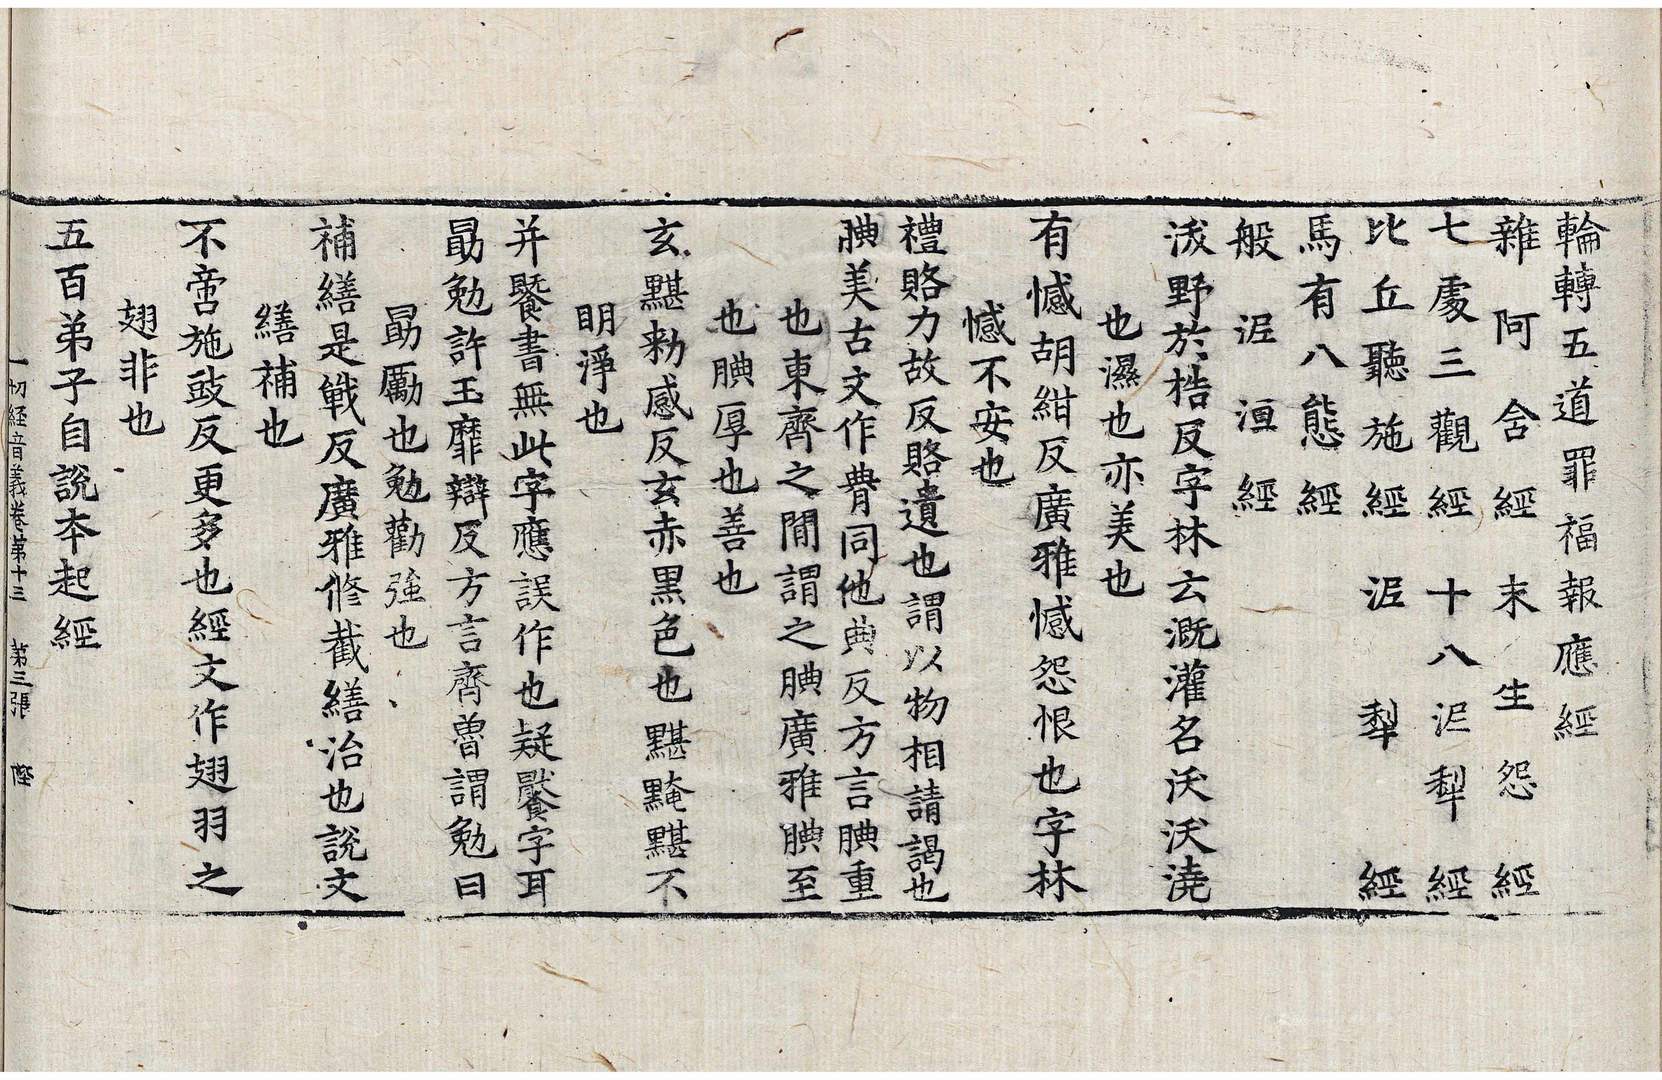 輪轉五道罪福報應經
雜阿含經末生怨經
七處三觀經十八泥犁經
比丘聽施經泥犁經
馬有八態經
般泥洹經
沷野於梏反字林云溉灌名沃沃澆
也濕也亦美也
有憾胡紺反廣雅憾怨恨也字林
憾不安也
禮賂力故反賂遺也謂以物相請謁也
腆美古文作𦝱同他典反方言腆重
也東齊之間謂之腆廣雅腆至
也腆厚也善也
玄黮勑感反玄赤黑色也黮黤黮不
明淨也
并書無此字應誤作也疑字耳
勗勉許玉靡辯反方言齊魯謂勉曰
勗勵也勉勸強也
補繕是戰反廣雅修截繕治也說文
繕補也
不啻施豉反更多也經文作翅羽之
翅非也
五百弟子自說本起經
一切經音義卷第十三 第三張